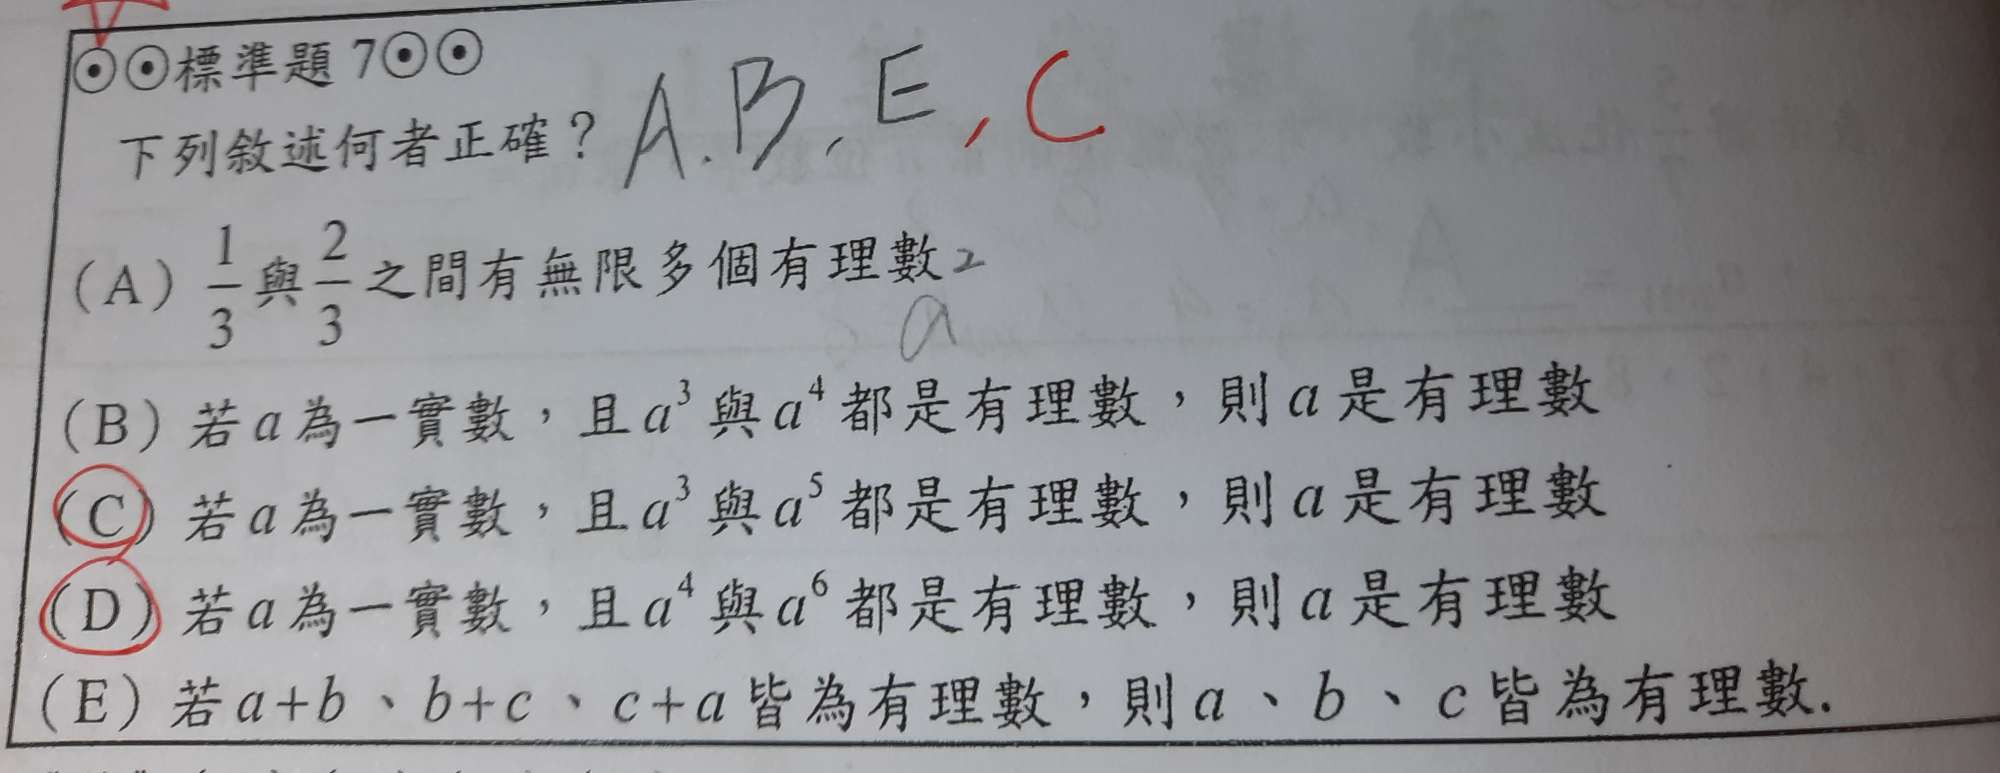 ⊙⊙標準題 7⊙⊙
下列敘述何者正確? A.B,E,C
(A) 1/3 與 2/3 之間有無限多個有理數 2
a
(B) 若 a 為一實數,且 a³ 與 a⁴ 都是有理數,則 a 是有理數
(C) 若 a 為一實數,且 a³ 與 a⁵ 都是有理數,則 a 是有理數
(D) 若 a 為一實數,且 a⁴ 與 a⁶ 都是有理數,則 a 是有理數
(E) 若 a+b、b+c、c+a 皆為有理數,則 a、b、c 皆為有理數.